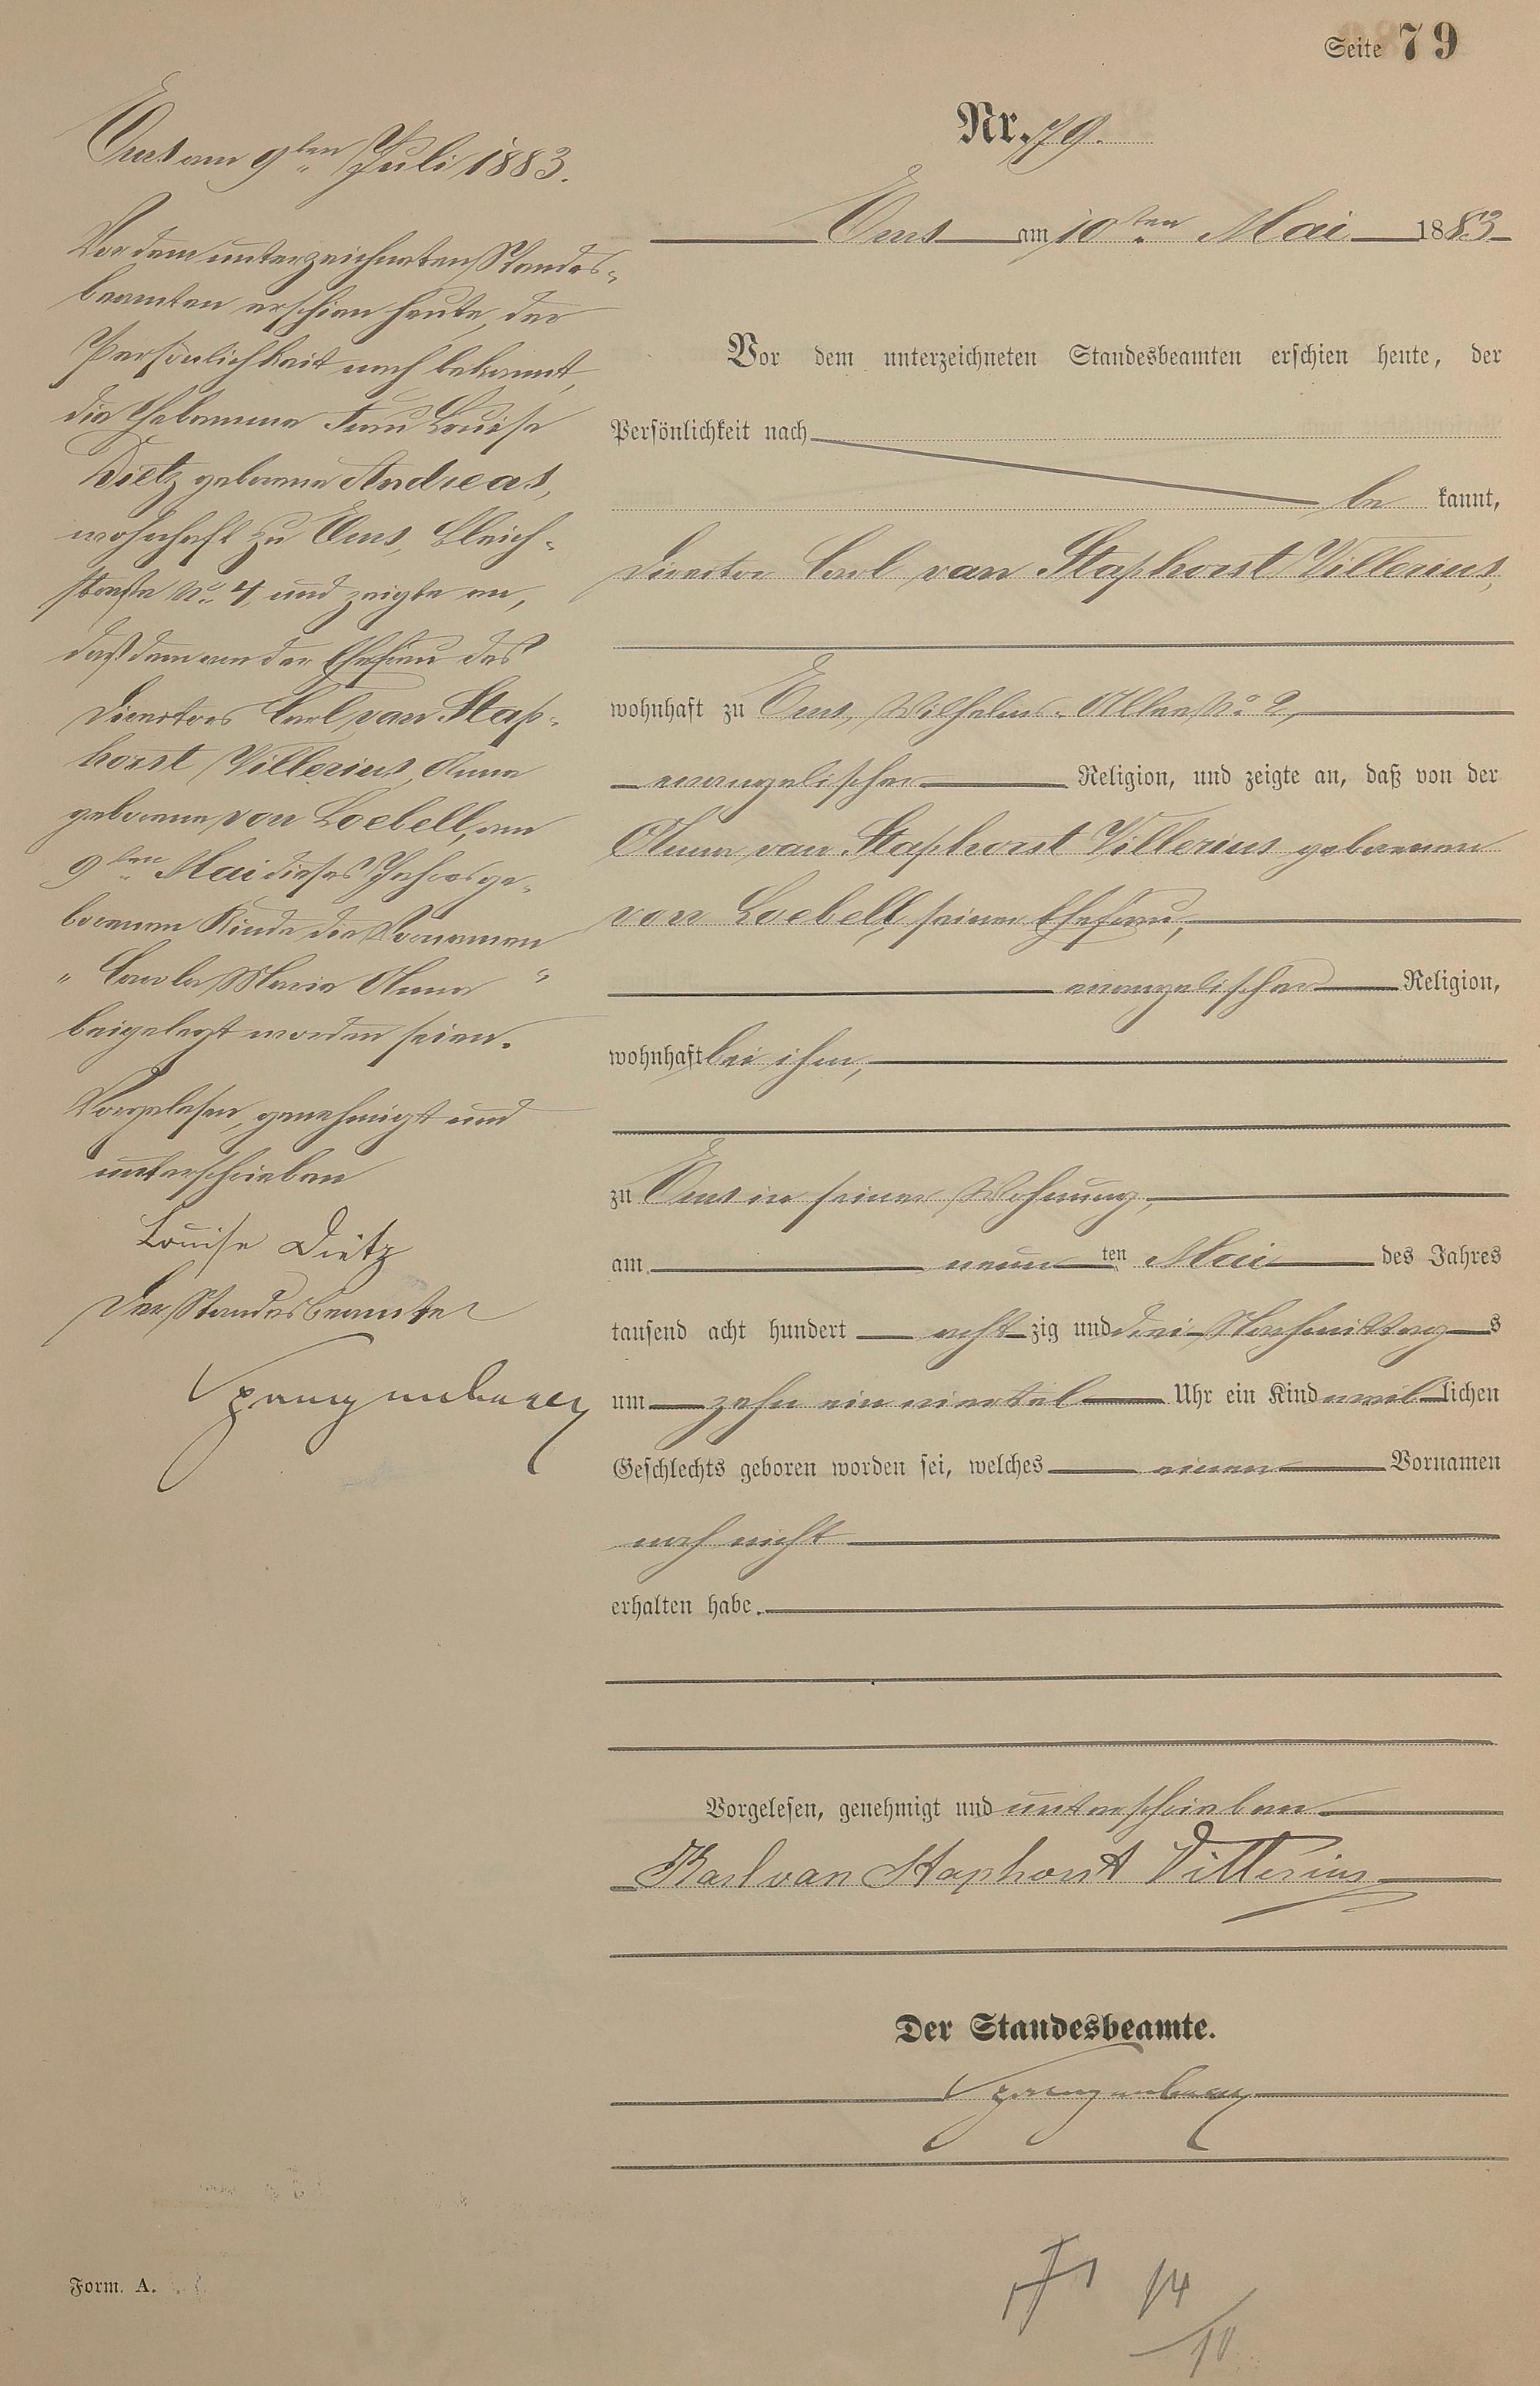 Seite 79
Nr. 79.
Ems am 10ten Mai 1883
Vor dem unterzeichneten Standesbeamten erschien heute, der
Persönlichkeit nach
be kannt,
Director Carl van Staphorst Villerius,
wohnhaft zu Ems, Wilhelms-Allee No. 2,
evangelischer Religion, und zeigte an, daß von der
Anna van Staphorst Villerius geborenen
von Loebell, seiner Ehefrau,
evangelischer Religion,
wohnhaft bei ihm,
zu Ems in seiner Wohnung,
am neun ten Mai des Jahres
tausend acht hundert acht zig und drei Nachmittag s
um zehn ein viertel Uhr ein Kind weib lichen
Geschlechts geboren worden sei, welches einen Vornamen
noch nicht
erhalten habe.
Vorgelesen, genehmigt und unterschrieben
Karl van Staphorst Villerius
Der Standesbeamte.
Ems am 9ten Juli 1883.
Vor dem unterzeichneten Standes-
beamten erschien heute, der
Persönlichkeit nach bekannt,
die Hebamme Frau Louise
Dietz geborene Andreas,
wohnhaft zu Ems, Bleich-
straße No. 4, und zeigte an,
daß dem von der Ehefrau des
Directors Carl van Stap-
horst Villerius, Anna
geborene von Loebell, am
9ten Mai dieses Jahres ge-
borenen Kinde die Vornamen
"Carola Maria Anna"
beigelegt worden seien.
Vorgelesen, genehmigt und
unterschrieben
Louise Dietz
Der Standesbeamte
Form. A.
14
10